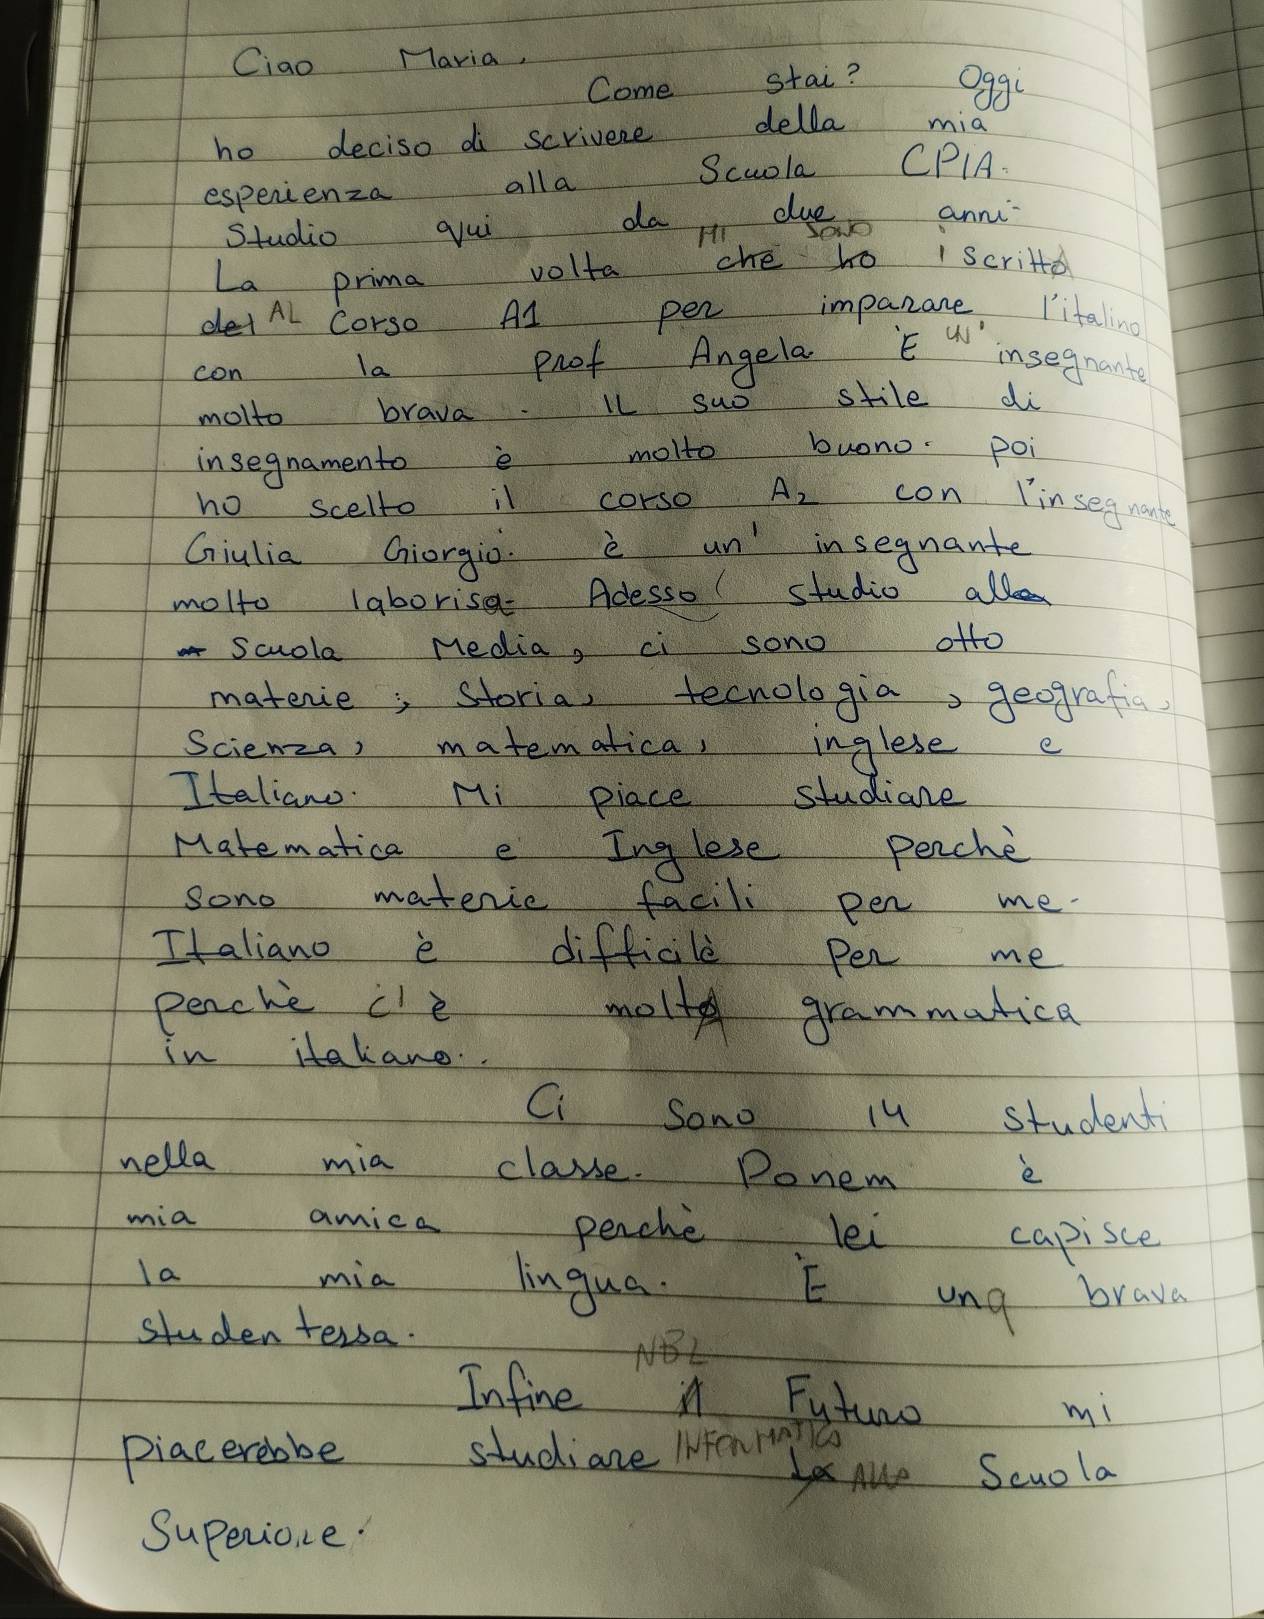 Ciao Maria,
Come stai? Oggi
ho deciso di scrivere della mia
esperienza alla Scuola CPIA.
Studio qui da due anni.
MI SONO
La prima volta che ho iscritto
del AL Corso A1 per imparare l'italino
con la prof Angela. È UN' insegnante
molto brava. IL suo stile di
insegnamento è molto buono. poi
ho scelto il corso A2 con l'insegnante
Giulia Giorgio. è un' insegnante
molto laborisa. Adesso studio alla
Scuola Media, ci sono otto
materie; Storia, tecnologia, geografia,
Scienza, matematica, inglese e
Italiano. Mi piace studiare
Matematica e Inglese perchè
sono materie facili per me.
Italiano è difficilè per me
perchè c'è molta grammatica
in italiano..
Ci sono 14 studenti
nella mia classe. Ponem è
mia amica perchè lei capisce
la mia lingua. È una brava
studentessa.
NEL
Infine il Futuro mi
piacerebbe studiare INFORMATICA la ALLA Scuola
Superiore.